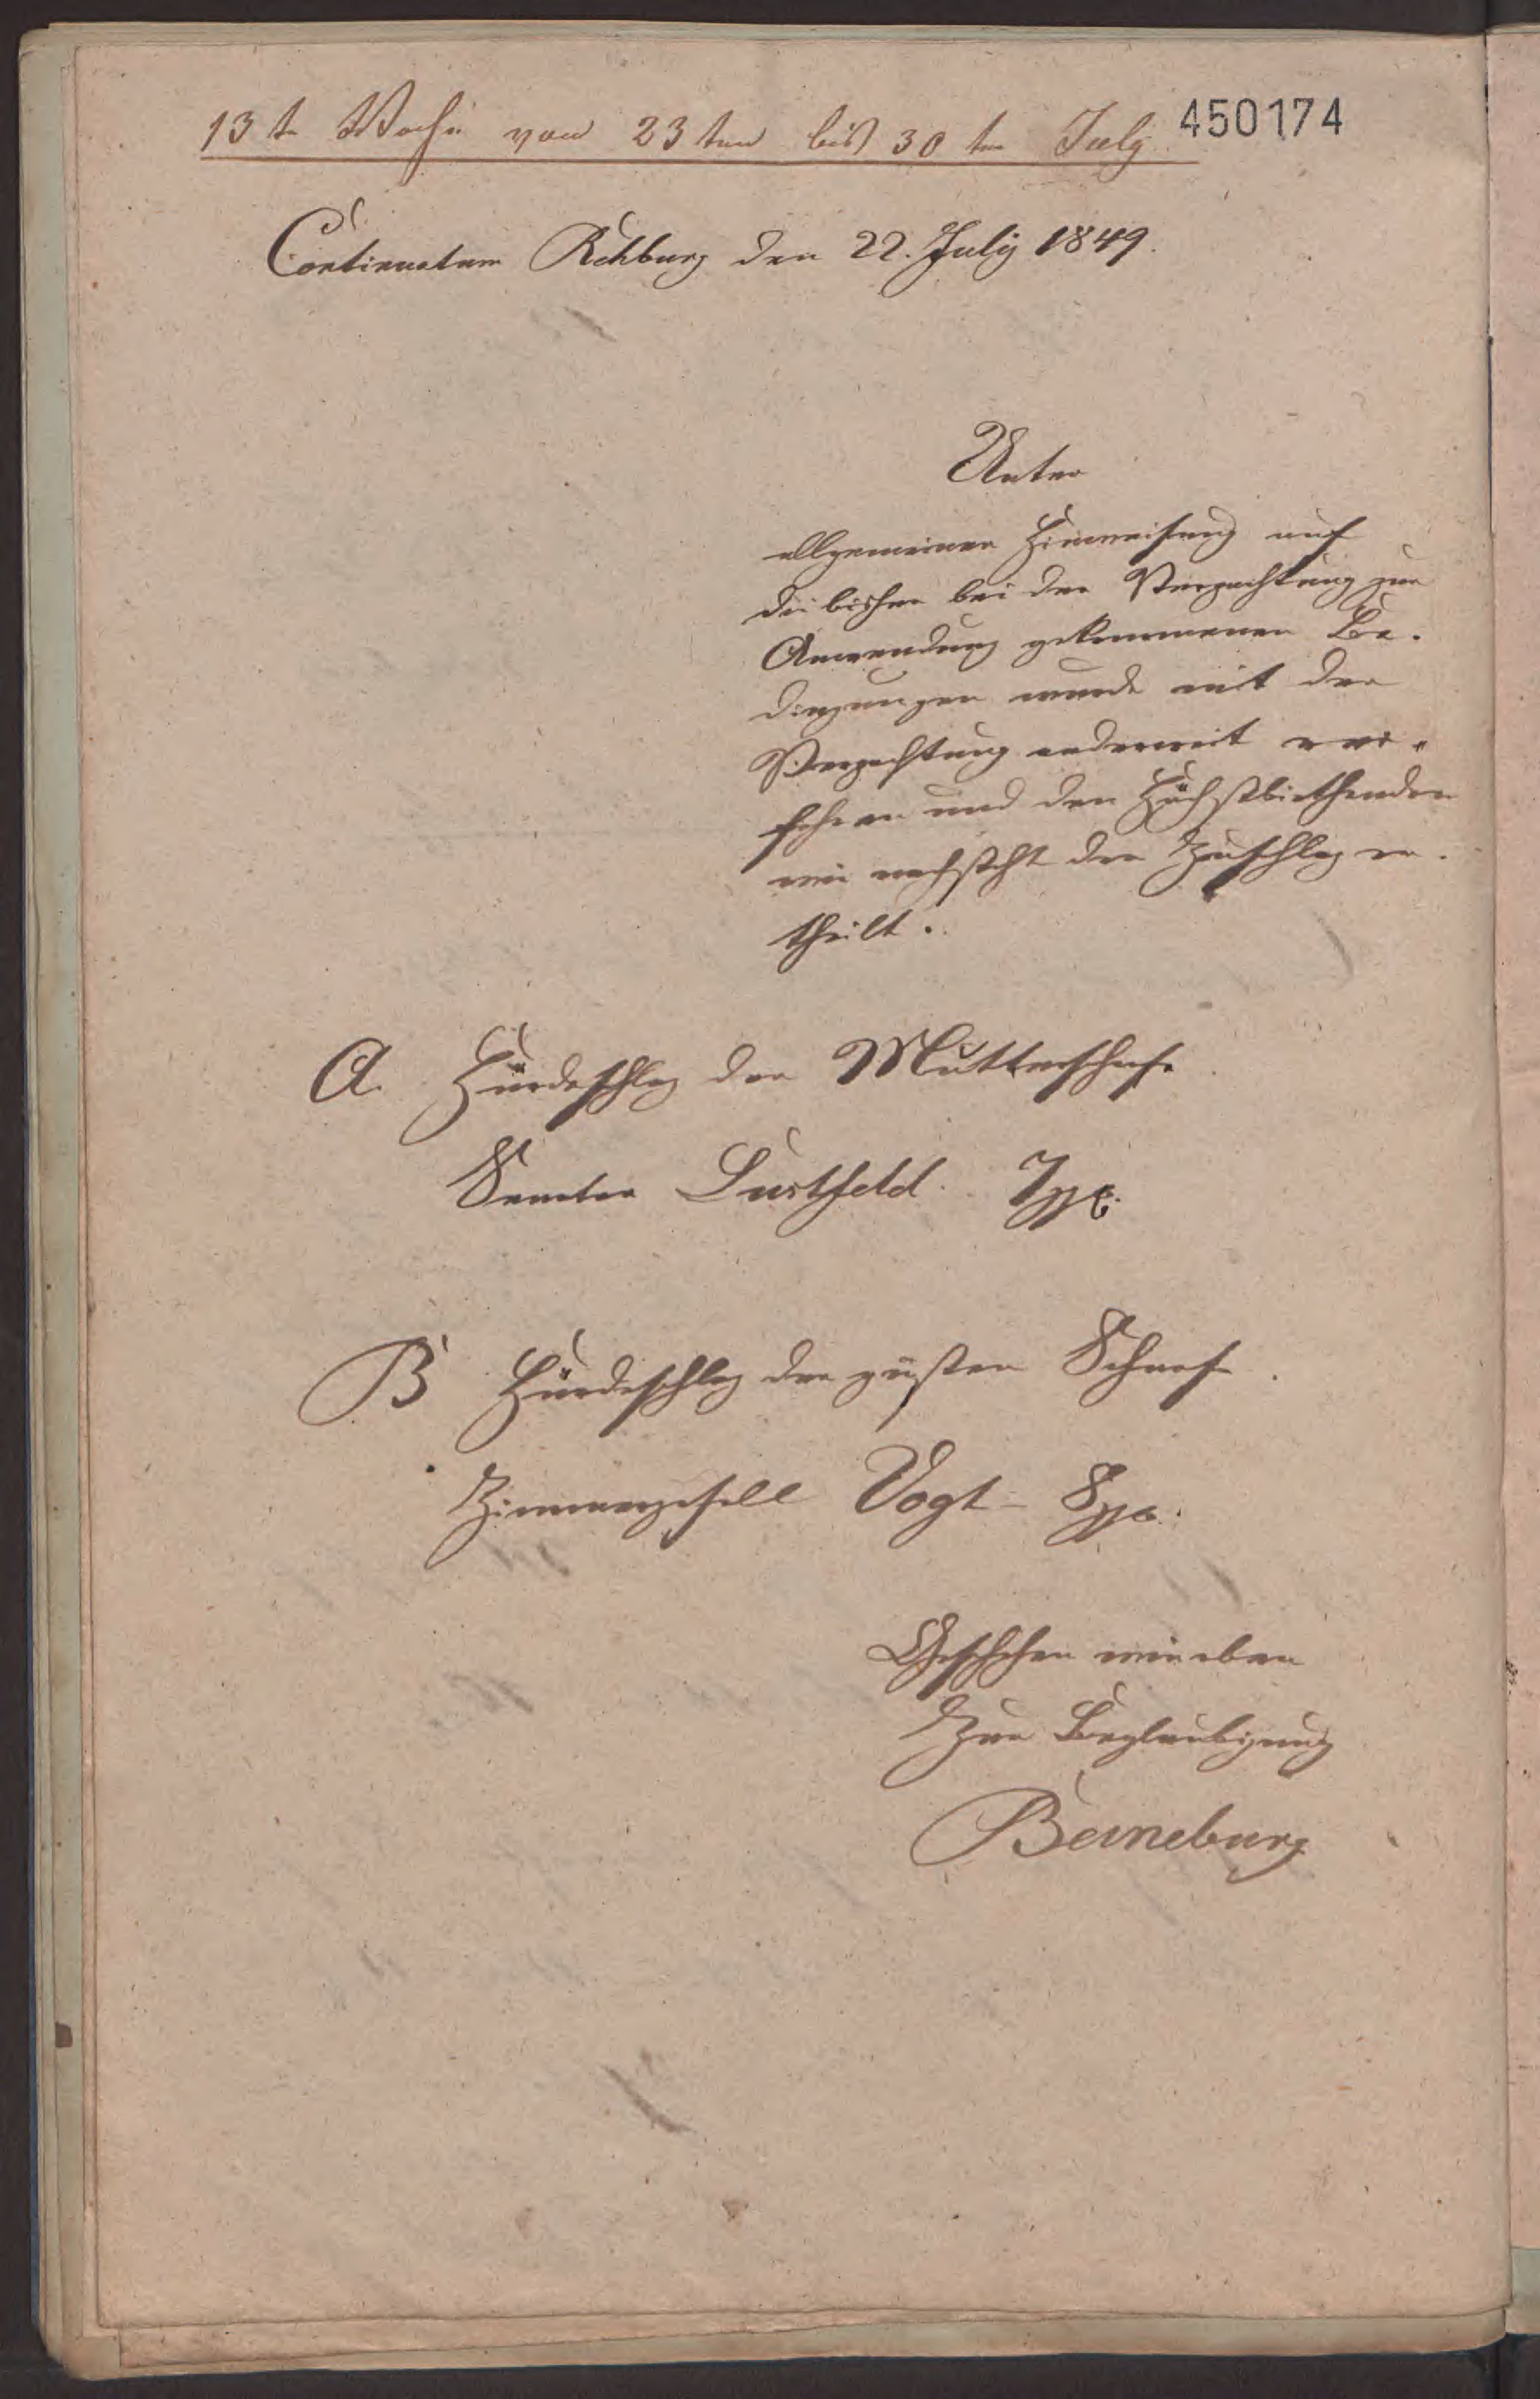 13te Woche vom 23ten bis 30ten July 450174
Continuatum Rehburg den 22. July 1849.
Unter
allgemeiner Hinweisung auf
die bisher bei der Verpachtung zur
Anwendung gekommenen Be-
dingungen wurde mit der
Verpachtung anderweit ver-
fahren und den Höchstbiethenden
wie nachsteht der Zuschlag er-
theilt.
A. Hürdeschlag der Mutterschafe
Senator Lustfeld. 7
B Hürdeschlag der güsten Schaafe.
Zimmergesell Vogt - 8
Geschehen wie oben
Zur Beglaubigung
Berneburg